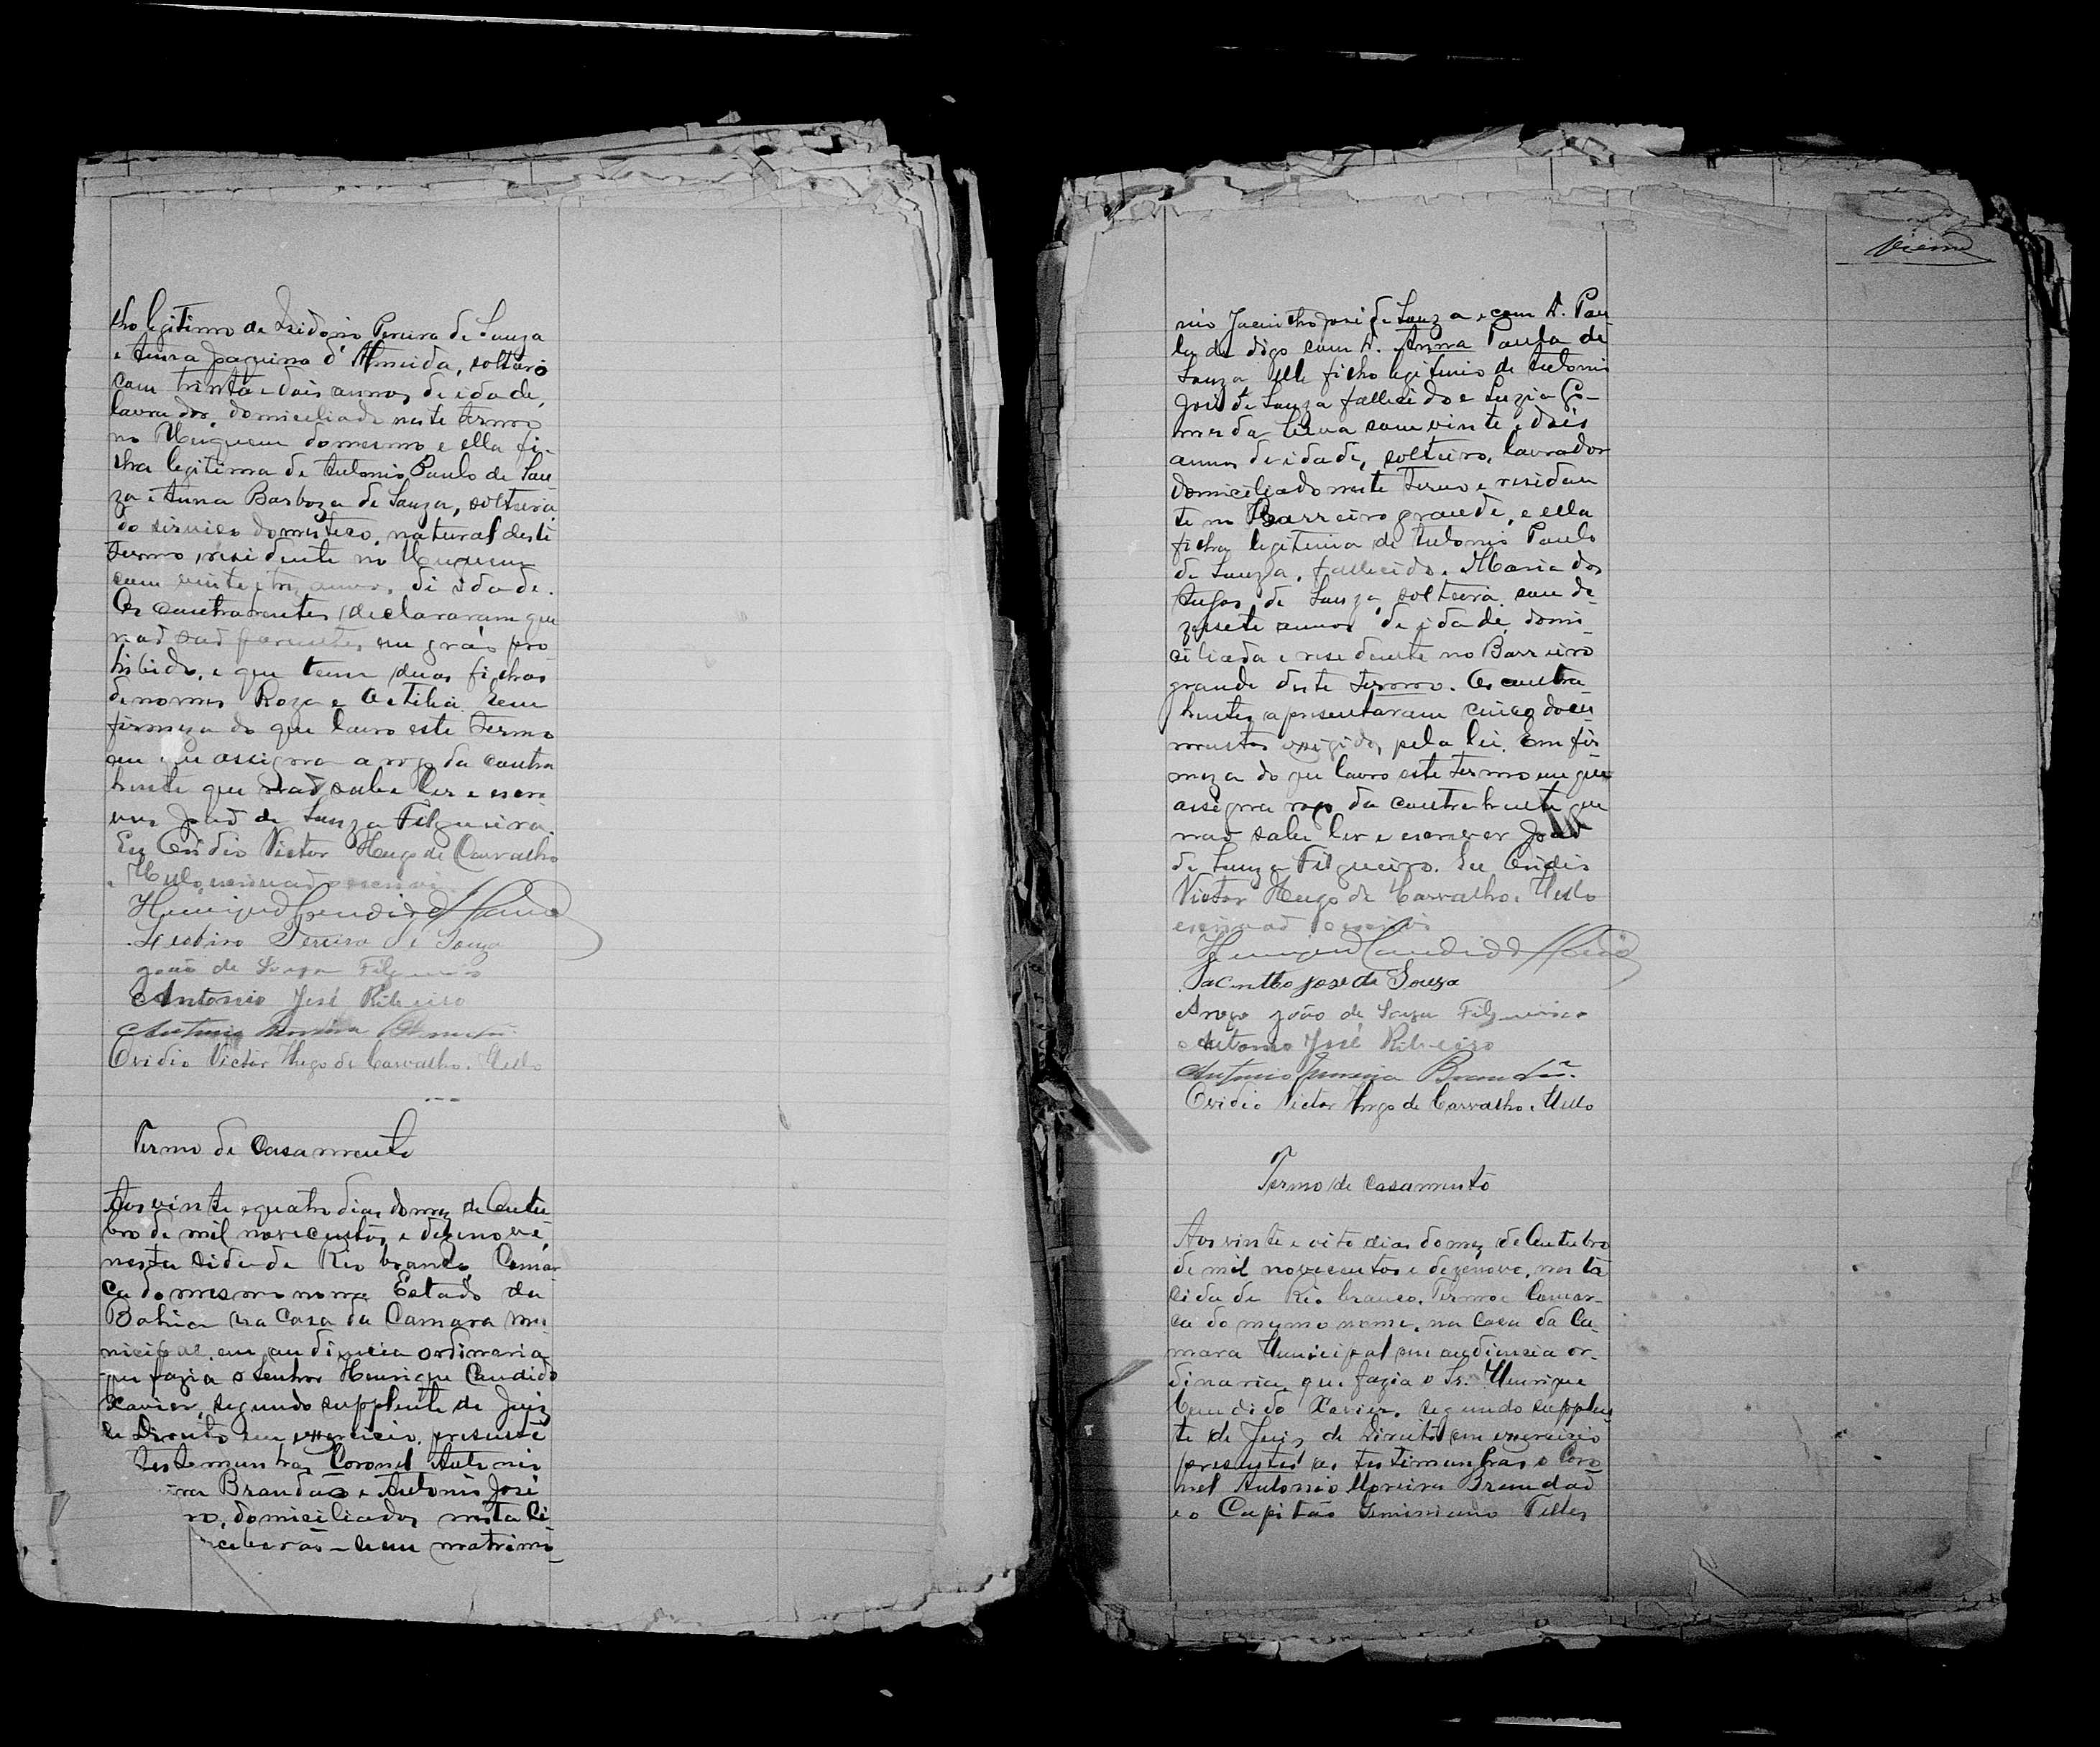 lho legitimo de Isidorio Pereira de Souza
e Anna Joaquina d'Almeida, solteiro
com trinta e dois annos de idade,
lavrador, domiciliado neste termo
no do mesmo e ella fi-
lha legitima de Antonio Paulo de Sou
za e Anna Barboza de Souza, solteira
do serviço domestico, natural deste
termo, residente no
com vinte e tres annos, de idade.
Os contrahentes declararam que
naõ saõ parentes em gráo pro
hibido, e que tem duas filhas
de nomes Roza e Octilia. Em
firmeza do que lavro este termo
em que assigna a rogo da contra
hente que naõ sabe ler e escre
ver Joaõ de Souza Filgueira.
Eu Ovidio Victor Hugo de Carvalho
e Mello, escrivaõ o escrevi.
Henrique Candido Xavier
Pereira de Souza
João de Souza Filgueira
Antonio José Ribeiro
Antonio Moreira Brandão
Ovidio Victor Hugo de Carvalho e Mello
Termo de Casamento
Aos vinte e quatro dias do mez de Outu
bro de mil novecentos e dezenove,
nesta Cidade de Rio branco Comar
ca do mesmo nome Estado da
Bahia na Casa da Camara Mu
nicipal em audiencia ordinaria
que fazia o Senhor Henrique Candido
Xavier, segundo supplente de Juiz
de Direito em exercicio, presente
testemunhas Coronel Antonio
ira Brandão e Antonio José
ro, domiciliados nesta Ci
ceberão-se em matrimo
Vieira
nio Jacintho José de Souza e com D. Pau
la de digo com D. Anna Paula de
Souza elle filho legitimo de Antonio
José de Souza fallecido e Luzia Go-
mes da Silva com vinte e dois
annos de idade, solteiro, lavrador
domiciliado neste termo e residen
te no Barreiro grande, e ella
filha legitima de Antonio Paulo
de Souza, fallecido e Maria dos
Anjos de Souza, solteira com de-
zessete annos de idade, domi-
ciliada e residente no Barreiro
grande deste termo. Os contra-
hentes apresentaram cinco docu-
mentos exigidos pela lei. Em fir
meza do que lavro este termo em que
assigna rogo da contrahente que
naõ sabe ler e escrever Joaõ
de Souza Filgueira. Eu Ovidio
Victor Hugo de Carvalho e Mello
escrivaõ o escrevi
Henrique Candido Xavier
Jacintho José de Souza
A rogo João de Souza Filgueira
Antonio José Ribeiro
Antonio Moreira Brandão.
Ovidio Victor Hugo de Carvalho e Mello
Termo de casamento
Aos vinte e oito dias do mez de Outubro
de mil novecentos e dezenove, nesta
cidade de Rio branco, Termo e Comar-
ca do mesmo nome, na Casa da Ca-
mara Municipal em audiencia or-
dinaria que fazia o Sr. Henrique
Candido Xavier, segundo supplen
te de Juiz de Direito em exercicio
presentes as testemunhas o Coro
nel Antonio Moreira Brandaõ
e o Capitão Geminiano Telles